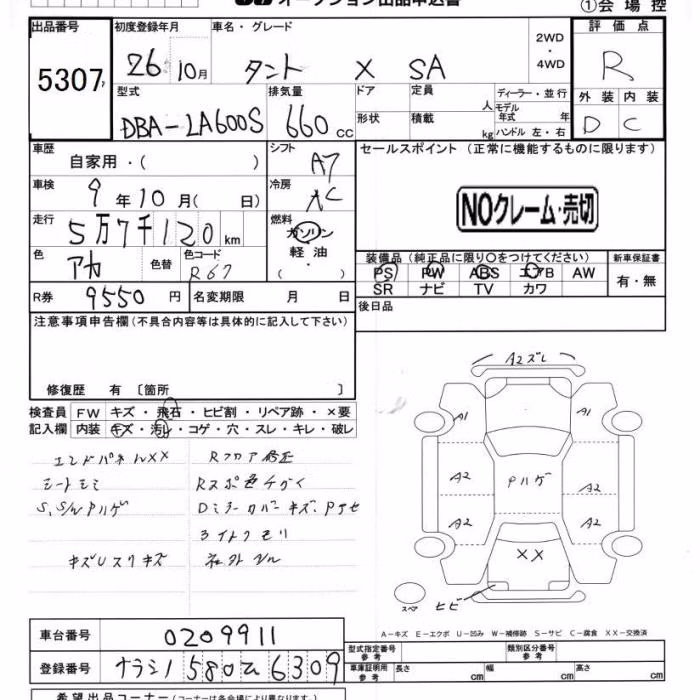 オークション出品申込書
①会場控
出品番号 5307
初度登録年月 26年10月
車名・グレード タント X SA
2WD・4WD
評価点 R
型式 DBA-LA600S
排気量 660cc
ドア
形状
定員 人
積載 kg
ディーラー・並行
モデル年式 年
ハンドル 左・右
外装 D
内装 C
車歴 自家用・( )
シフト A7
セールスポイント (正常に機能するものに限ります)
車検 9年10月( 日)
冷房 AC
NOクレーム・売切
走行 5万7千120km
燃料 ガソリン・軽油・( )
色 アカ
色替
色コード R67
装備品 (純正品に限り〇をつけてください)
PS PW ABS エアB AW
SR ナビ TV カワ
新車保証書 有・無
R券 9550円
名変期限 月 日
後日品
注意事項申告欄 (不具合内容等は具体的に記入して下さい)
修復歴 有 〔箇所 〕
検査員記入欄
FW キズ・飛石・ヒビ割・リペア跡・×要
内装 キズ・汚れ・コゲ・穴・スレ・キレ・破レ
エンドパネルXX
Rフロア修正
シートモミ
Rスポ色チガイ
S,S/Wハゲ
Dミラーカバーキズ
キズUスリキズ
A2ズレ
A1 A1
A2 Pハゲ A2
A2 A2
XX
スペア
ヒビ
A-キズ E-エクボ U-凹み W-補修跡 S-サビ C-腐食 XX-交換済
車台番号 0209911
登録番号 ナラシノ 580 6309
型式指定番号 参考
類別区分番号 参考
車庫証明用 参考 長さ cm 幅 cm 高さ cm
希望出品コーナー (コーナーは各会場により異なります)